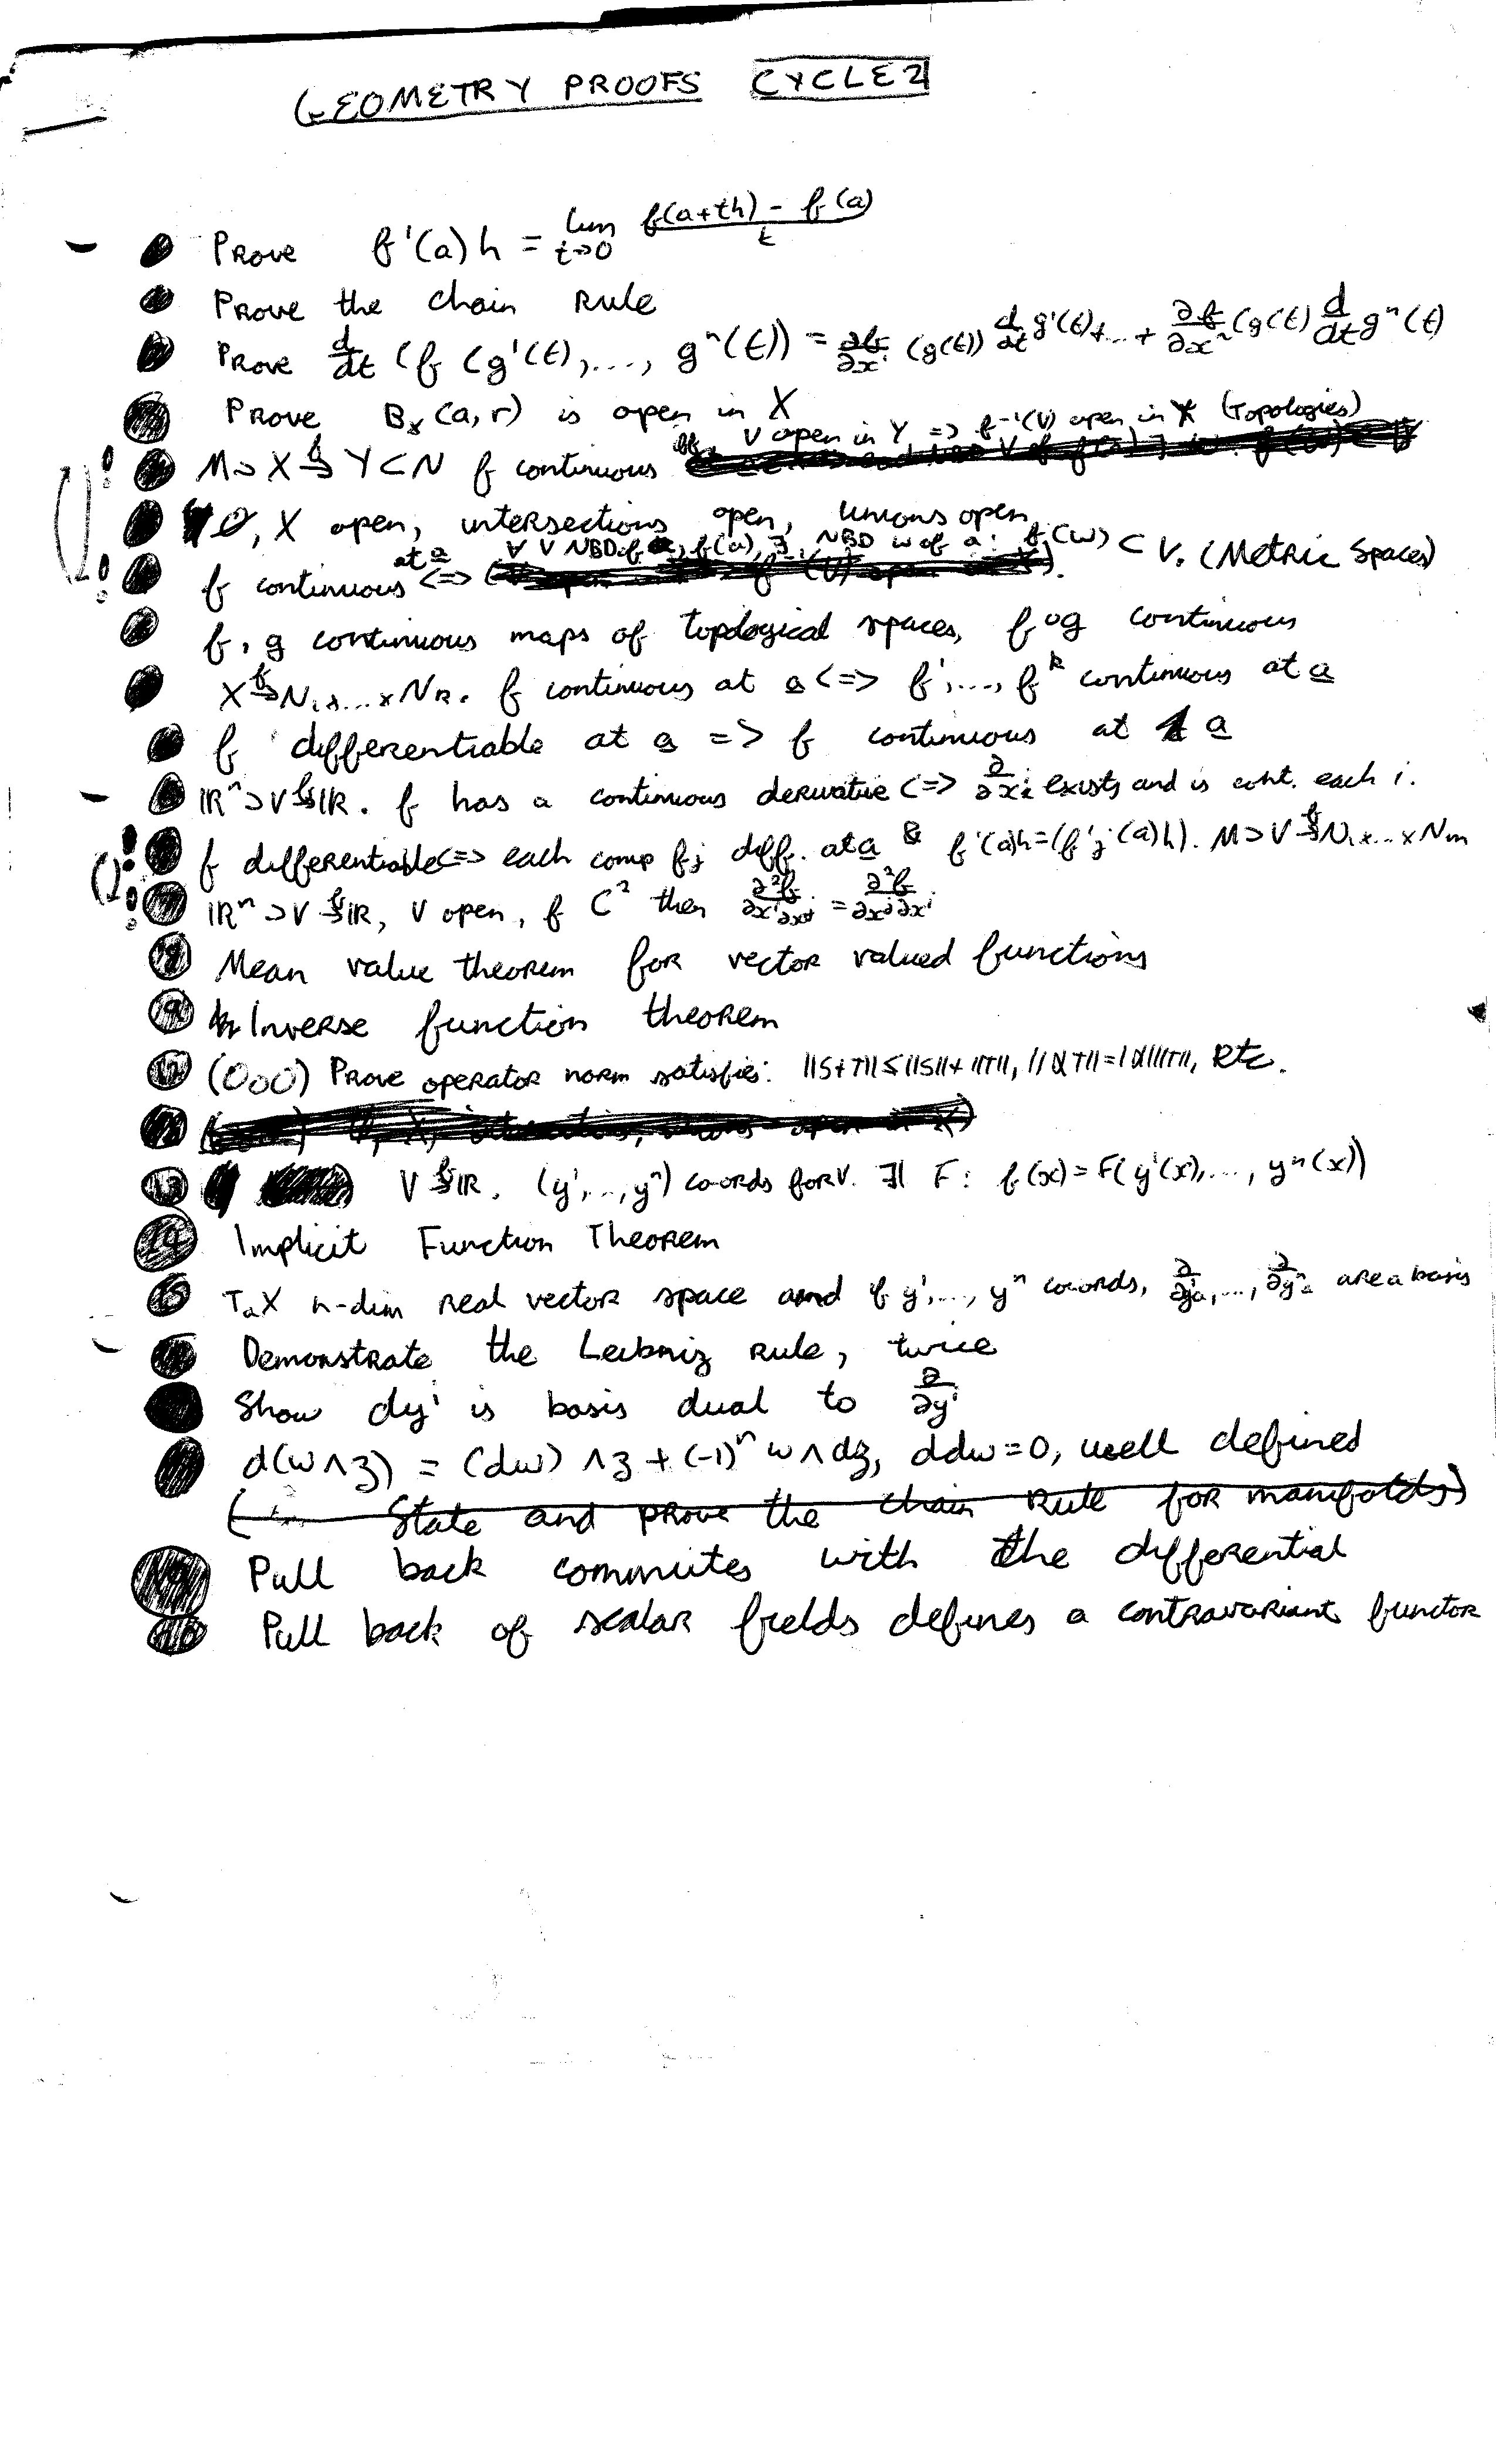 GEOMETRY PROOFS CYCLE 2
Prove f'(a)h = lim t→0 f(a+th) - f(a) / t
Prove the chain rule
Prove d/dt (f(g¹(t),..., gⁿ(t)) = ∂f/∂x¹ (g(t)) d/dt g¹(t)+...+ ∂f/∂xⁿ (g(t) d/dt gⁿ(t)
Prove Bₓ(a,r) is open in X
iff V open in Y => f⁻¹(V) open in X (Topologies)
M⊃X →f Y⊂N f continuous
∅, X open, intersections open, unions open
at a ∀ V NBD of f(a), ∃ NBD W of a: f(W) ⊂ V. (Metric Spaces)
f continuous <=>
f, g continuous maps of topological spaces, f∘g continuous
X →f N₁x...xNₖ. f continuous at a <=> f¹,..., fᵏ continuous at a
f differentiable at a => f continuous at a
ℝⁿ⊃V →f ℝ. f has a continuous derivative <=> ∂/∂xi exists and is cont. each i.
f differentiable <=> each comp fj diff. at a & f'(a)h=(f'j(a)h). M⊃V →f N₁x...xNm
ℝⁿ⊃V →f ℝ, V open, f C² then ∂²f/∂xⁱ∂xʲ = ∂²f/∂xʲ∂xⁱ
Mean value theorem for vector valued functions
Inverse function theorem
(000) Prove operator norm satisfies: ||S+T||≤||S||+||T||, ||αT||=|α|||T||, etc.
13 V →f ℝ. (y¹,...,yⁿ) co-ords for V. ∃! F: f(x)=F(y¹(x),..., yⁿ(x))
14 Implicit Function Theorem
15 TₐX n-dim real vector space and if y¹,..., yⁿ co-ords, ∂/∂y¹ₐ,..., ∂/∂yⁿₐ are a basis
Demonstrate the Leibniz rule, twice
Show dyⁱ is basis dual to ∂/∂yⁱ
d(w∧z) = (dw)∧z + (-1)ⁿ w∧dz, ddw=0, well defined
( State and prove the chain rule for manifolds)
Pull back commutes with the differential
Pull back of scalar fields defines a contravariant functor